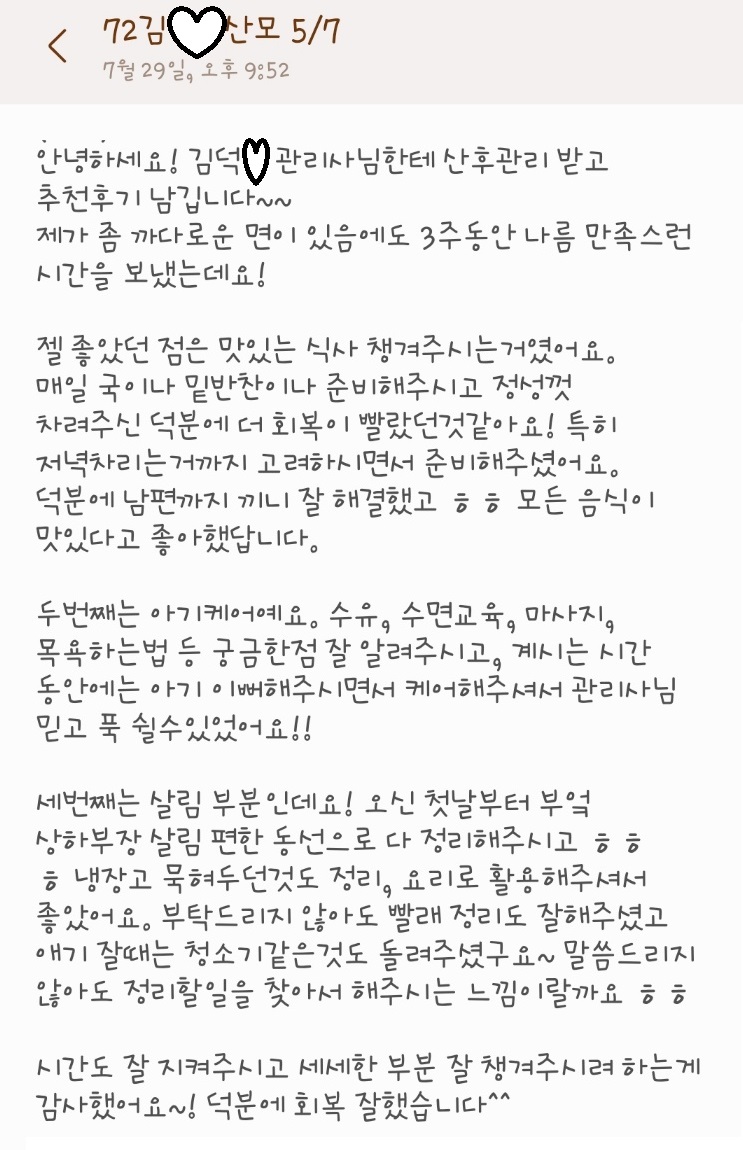 72김 산모 5/7
7월 29일, 오후 9:52
안녕하세요! 김덕 관리사님한테 산후관리 받고
추천후기 남깁니다~~
제가 좀 까다로운 면이 있음에도 3주동안 나름 만족스런
시간을 보냈는데요!
젤 좋았던 점은 맛있는 식사 챙겨주시는거였어요.
매일 국이나 밑반찬이나 준비해주시고 정성껏
차려주신 덕분에 더 회복이 빨랐던것같아요! 특히
저녁차리는거까지 고려하시면서 준비해주셨어요.
덕분에 남편까지 끼니 잘 해결했고 ㅎㅎ 모든 음식이
맛있다고 좋아했답니다.
두번째는 아기케어예요. 수유, 수면교육, 마사지,
목욕하는법 등 궁금한점 잘 알려주시고, 계시는 시간
동안에는 아기 이뻐해주시면서 케어해주셔서 관리사님
믿고 푹 쉴수있었어요!!
세번째는 살림 부분인데요! 오신 첫날부터 부엌
상하부장 살림 편한 동선으로 다 정리해주시고 ㅎㅎ
ㅎ 냉장고 묵혀두던것도 정리, 요리로 활용해주셔서
좋았어요. 부탁드리지 않아도 빨래 정리도 잘해주셨고
애기 잘때는 청소기같은것도 돌려주셨구요~ 말씀드리지
않아도 정리할일을 찾아서 해주시는 느낌이랄까요 ㅎㅎ
시간도 잘 지켜주시고 세세한 부분 잘 챙겨주시려 하는게
감사했어요~! 덕분에 회복 잘했습니다^^